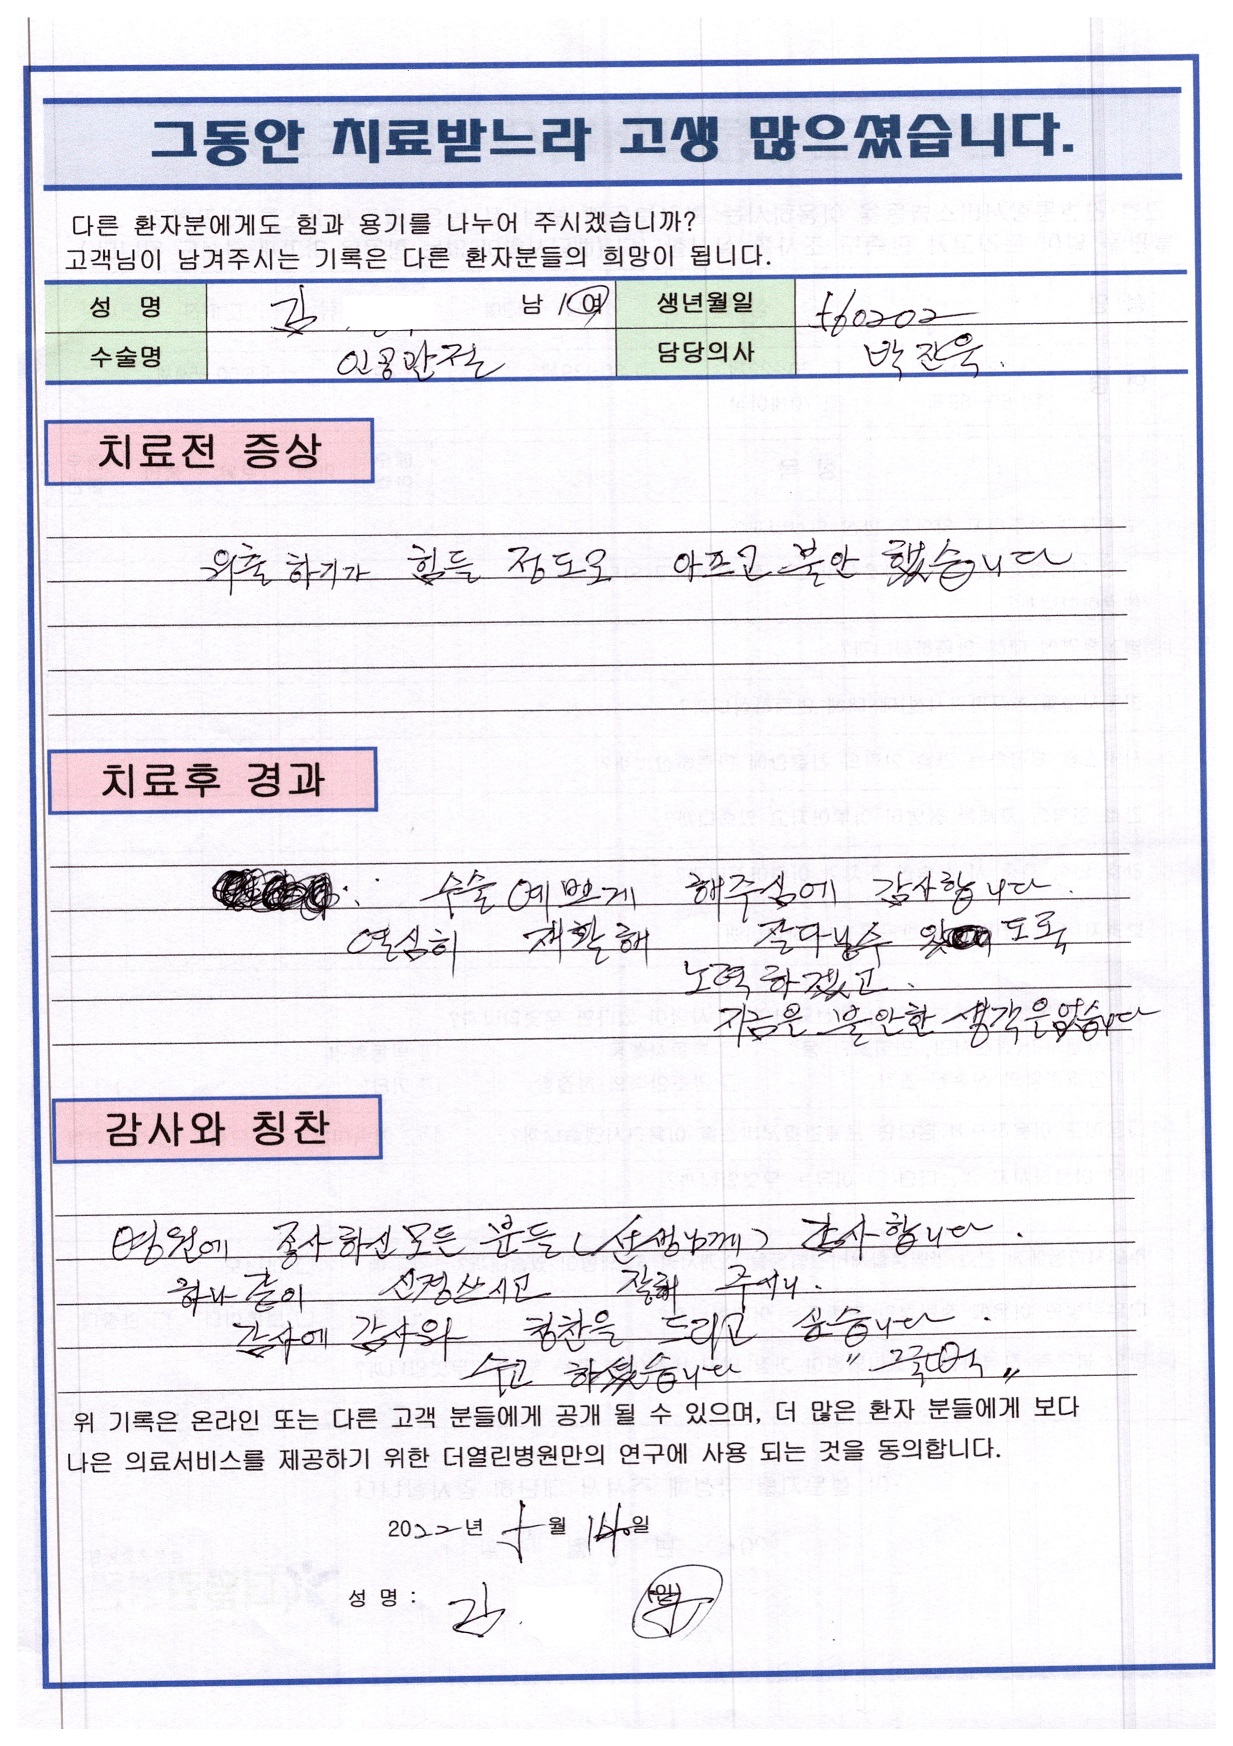 그동안 치료받느라 고생 많으셨습니다.
다른 환자분에게도 힘과 용기를 나누어 주시겠습니까?
고객님이 남겨주시는 기록은 다른 환자분들의 희망이 됩니다.
성 명 김 남 / 여 생년월일 560202
수술명 인공관절 담당의사 박진욱.
치료전 증상
외출 하기가 힘들 정도로 아프고 불안 했습니다
치료후 경과
수술 예쁘게 해주심에 감사합니다.
열심히 재활해 잘다닐수 있도록
노력 하겠고.
지금은 불안한 생각은 없습니다
감사와 칭찬
병원에 종사하신 모든 분들 (선생님께) 감사합니다.
하나 같이 신경쓰시고 잘해 주셔서.
감사에 감사와 칭찬을 드리고 싶습니다.
수고 하셨습니다 "꾸벅"
위 기록은 온라인 또는 다른 고객 분들에게 공개 될 수 있으며, 더 많은 환자 분들에게 보다
나은 의료서비스를 제공하기 위한 더열린병원만의 연구에 사용 되는 것을 동의합니다.
2022년 5월 14일
성 명 : 김. (인)